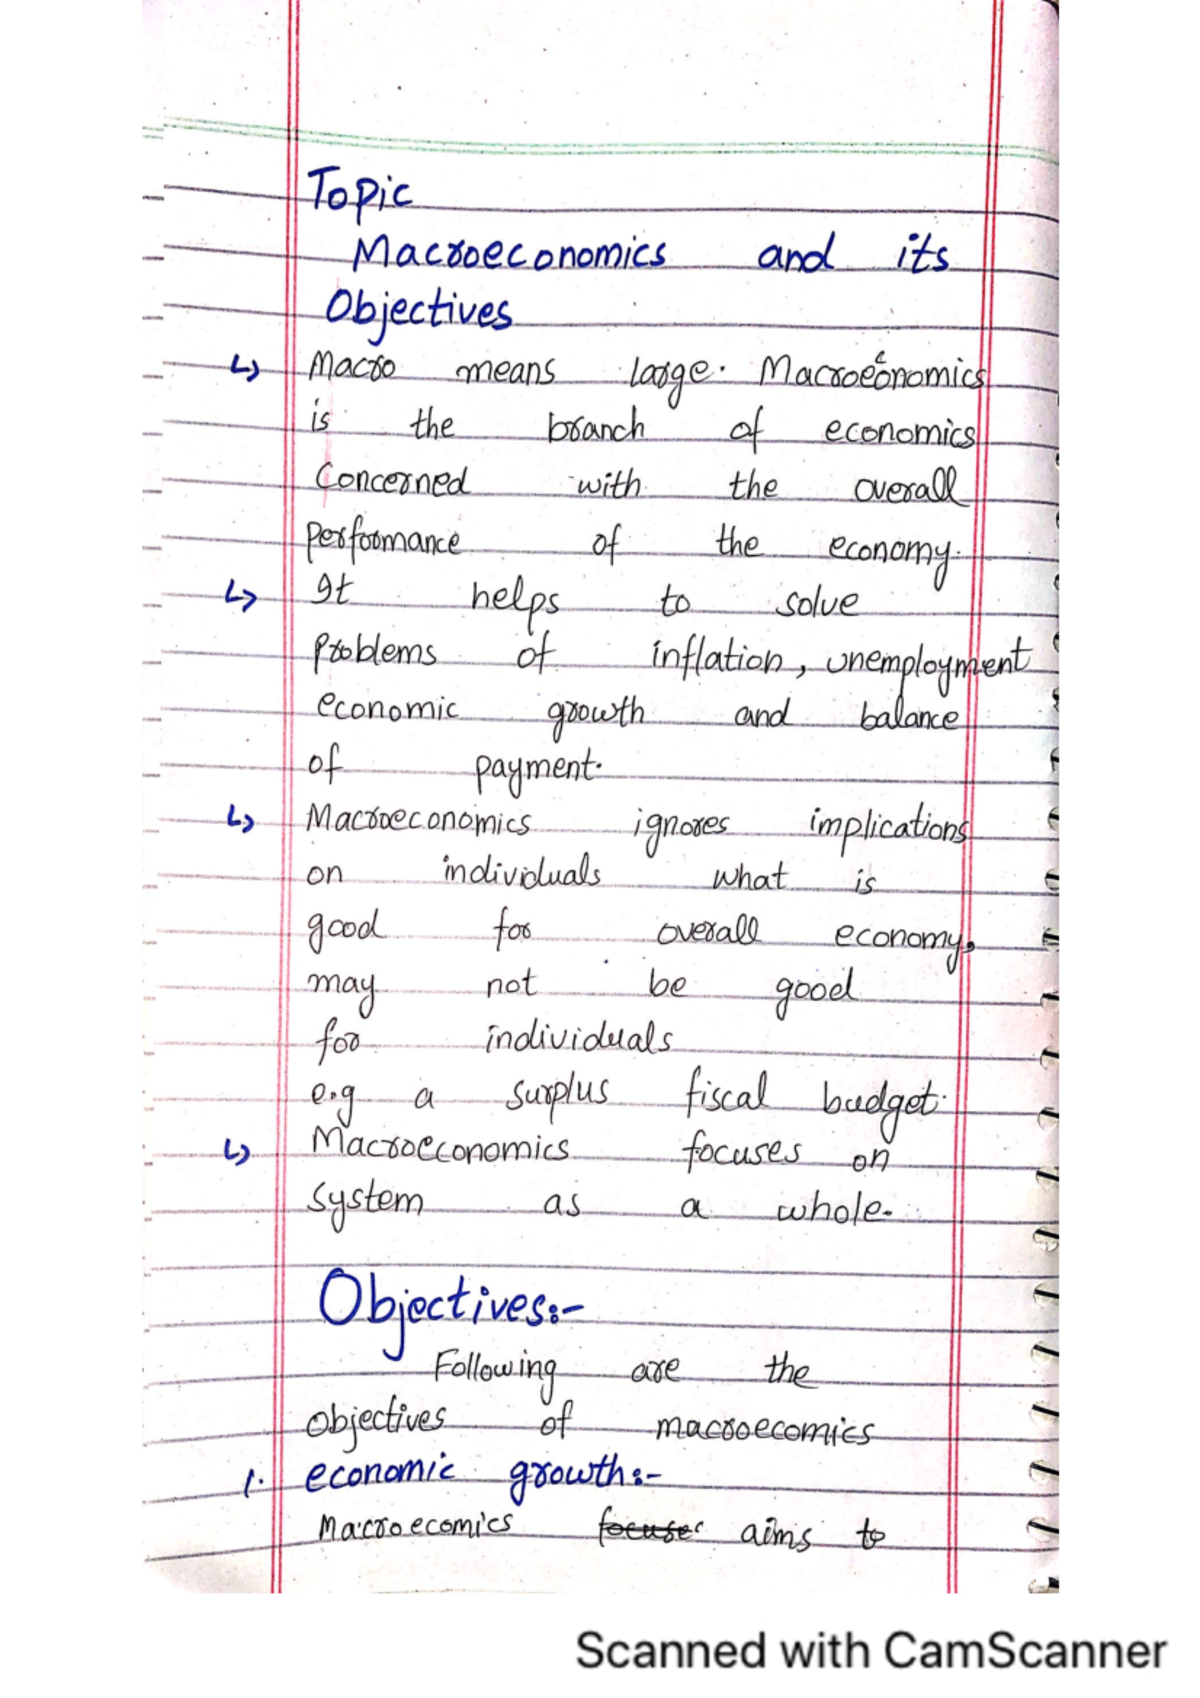 Topic
Macroeconomics and its
Objectives
↳ Macro means large. Macroeconomics
is the branch of economics
Concerned with the overall
performance of the economy.
↳ It helps to solve
problems of inflation, unemployment
economic growth and balance
of payment.
↳ Macroeconomics ignores implications
on individuals what is
good for overall economy,
may not be good
for individuals
e.g a surplus fiscal budget.
↳ Macroeconomics focuses on
system as a whole.
Objectives:-
Following are the
objectives of macroecomics
1. economic growth:-
Macroecomics focuses aims to
Scanned with CamScanner